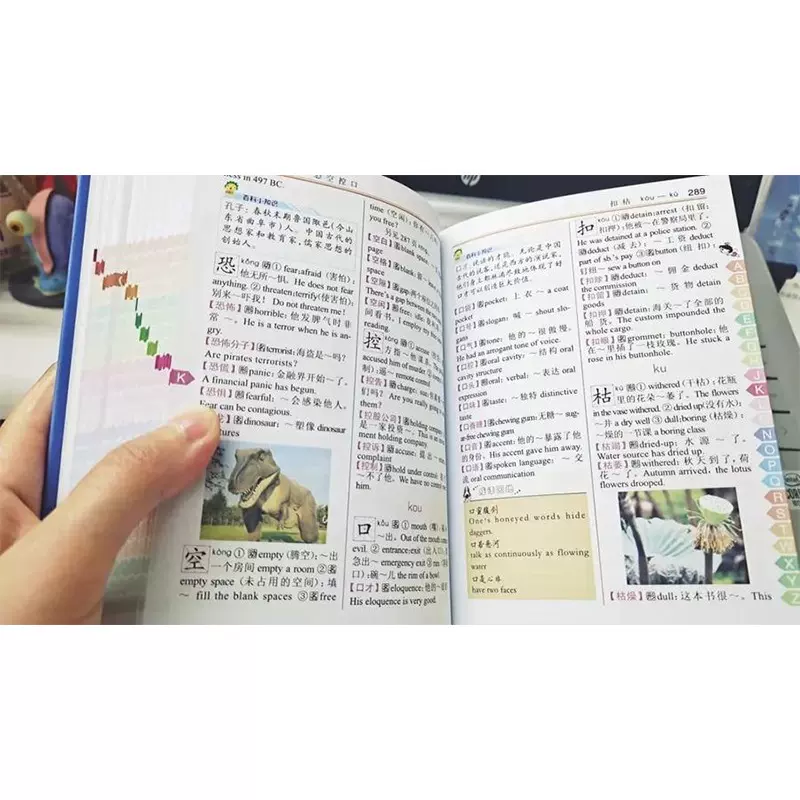 ness in 497 BC.
百科小知识
孔子：春秋末期鲁国陬邑(今山
东省曲阜市)人。中国古代的
思想家和教育家，儒家思想的
创始人。
恐 kǒng ① fear;afraid (害怕)：
他无所～惧。He does not fear
anything. ② threaten;terrify(使害怕)：
别来～吓我! Do not threaten me!
【恐怖】horrible: 他发脾气时非
常～。He is a terror when he is an-
gry.
【恐怖分子】terrorist: 海盗是～吗?
Are pirates terrorists?
【恐慌】panic: 金融界开始～了。
A financial panic has begun.
【恐惧】fearful: ～会感染他人。
Fear can be contagious.
dinosaur: ～塑像 dinosaur
空 kòng ① empty (腾空)：～出
一个房间 empty a room ②
empty space (未占用的空间)：填
～ fill the blank spaces ③ free
空控口
time (空闲)：
you free?
另见287页
【空白】blank
page
【空格】blank
space
【空隙】gap:
There's a gap between the
【空闲】free; idle:
reading.
控
accused him of murder.
remote control
【控告】charge; sue:
them?
【控股公司】holding company
是一家投资～。This is an invest-
ment holding company.
【控诉】accuse: 提出～
complaint
【控制】hold under control:
～不了他。We have no control over
him.
kou
口 kǒu ① mouth (嘴)：
～出。Out of the mouth comes
evil. ② entrance;exit (出入口)：
急出～ emergency exit ③
口)：碗～儿 the rim of a bowl
【口才】eloquence: 他的～
His eloquence is very good.
扣 枯 kòu — kū 289
百科小知识
口才：说话的才能。无论是中国
古代的说客，还是西方的演说家，
他们身上都极尽所能地体现了好
口才可以创造巨大价值。
【口袋】pocket: 上衣～ a coat
pocket
【口号】slogan: 喊～ shout slo-
gans
【口气】tone: 他的～很傲慢。
He had an arrogant tone of voice.
【口腔】oral cavity: ～结构 oral
cavity structure
【口头】oral; verbal: ～表达 oral
expression
【口味】taste: ～独特 distinctive
taste
【口香糖】chewing gum: 无糖～ sug-
ar-free chewing gum
【口音】accent: 他的～暴露了他
的身份。His accent gave him away.
【口语】spoken language: ～交
流 oral communication
口蜜腹剑
One's honeyed words hide
daggers.
口若悬河
talk as continuously as flowing
water
口是心非
have two faces
扣 kòu ① detain; arrest (扣留;
扣押)：他被～在警察局里了。
He was detained at a police station. ②
deduct (减去)：～工资 deduct
part of sb.'s pay ③ button (纽扣)：
钮扣～ sew a button on
【扣除】deduct: ～佣金 deduct
the commission
【扣留】detain: ～货物 detain
goods
【扣押】detain: 海关～了全部的
船货。The custom impounded the
whole cargo.
【扣眼】grommet; buttonhole: 他
在～里插了一枝玫瑰。He stuck a
rose in his buttonhole.
ku
枯 kū ① withered (干枯)：花瓶
里的花朵～萎了。The flowers
in the vase withered. ② dried up(没有水)：
～井 a dry well ③ dull;boring (枯燥)：
～燥的一节课 a boring class
【枯竭】dried-up: 水源～了。
Water source has dried up.
【枯萎】withered: 秋天到了，荷
花～了。Autumn arrived, the lotus
flowers drooped.
【枯燥】dull: 这本书很～。This
K
A
B
C
D
E
F
G
H
J
K
L
M
N
O
P
Q
R
S
T
W
X
Y
Z